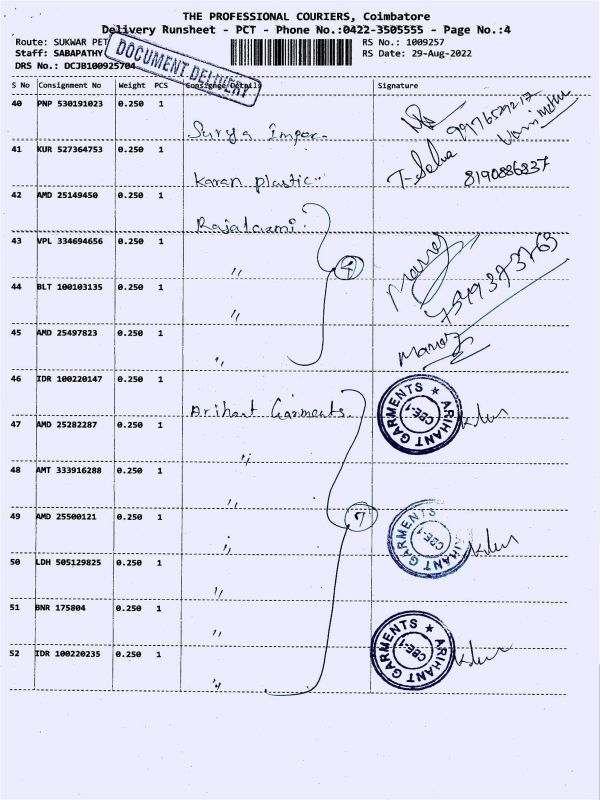 THE PROFESSIONAL COURIERS, Coimbatore
Delivery Runsheet - PCT - Phone No.:0422-3505555 - Page No.:4
Route: SUKWAR PET
RS No.: 1009257
Staff: SABAPATHY
RS Date: 29-Aug-2022
DRS No.: DCJB100925704
DOCUMENT DELIVERY
S No Consignment No Weight PCS Consignee Details Signature
40 PNP 530191023 0.250 1
Surya Impex.
41 KUR 527364753 0.250 1
Karan plastic
T-Selva 8190886837
42 AMD 25149450 0.250 1
Rajalaxmi
43 VPL 334694656 0.250 1
" 4
Manoj
44 BLT 100103135 0.250 1
"
45 AMD 25497823 0.250 1
"
Manoj
46 IDR 100220147 0.250 1
Arihant Garments
ARIHANT GARMENTS ★ CBE-1
47 AMD 25282287 0.250 1
"
48 AMT 333916288 0.250 1
"
49 AMD 25500121 0.250 1
" 7
ARIHANT GARMENTS CBE-1
50 LDH 505129825 0.250 1
"
51 BNR 175804 0.250 1
"
ARIHANT GARMENTS ★ CBE-1
52 IDR 100220235 0.250 1
"